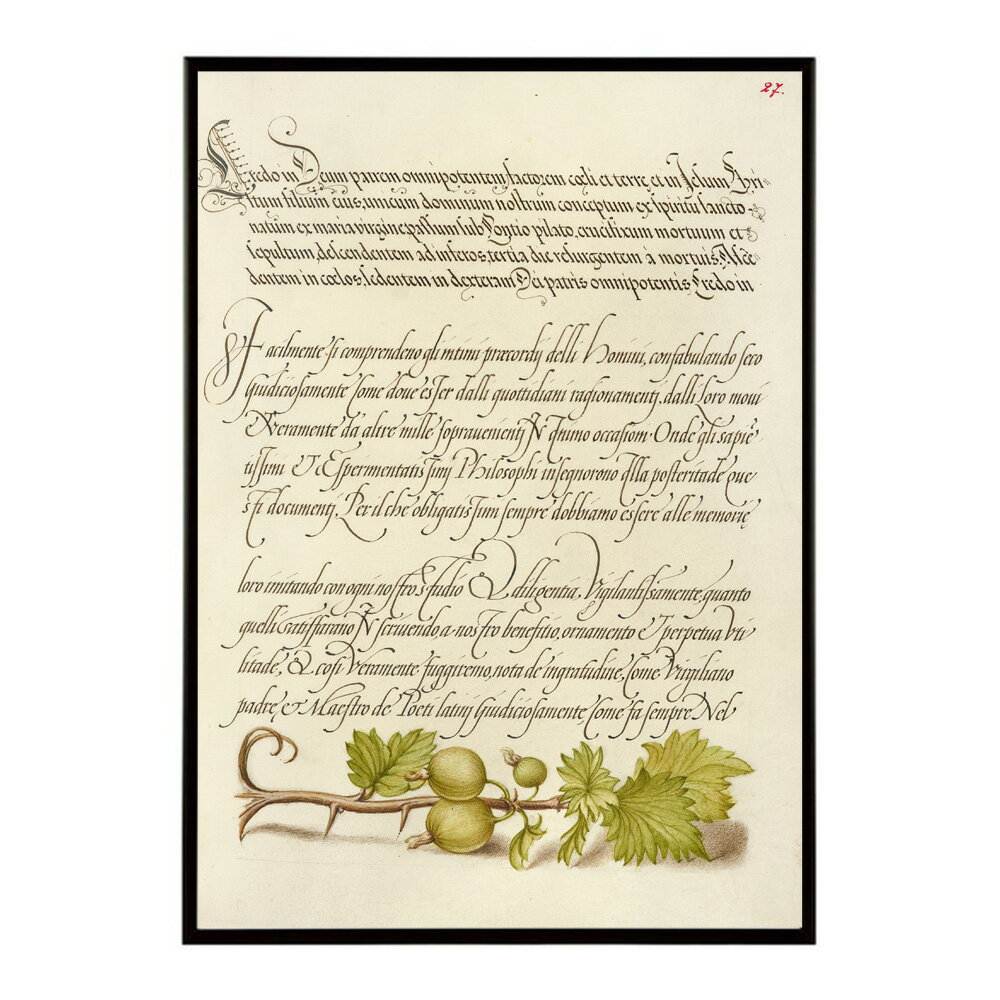 27.
Credo in Deum patrem omnipotentem, factorem cœli et terrę et in Jesum Chri
stum filium eius, unicum dominum nostrum conceptum ex spiritu sancto
natum ex maria virgine, passum sub Pontio pilato, crucifixum mortuum et
sepultum, descendentem ad inferos, tertia die resurgentem á mortuis. Ascē
dentem in cœlos, sedentem in dexteram Dei patris omnipotentis Credo in
Facilmente si comprendeno gli intimi præcordij delli Homini, confabulando sero
Giudiciosamente Come doue esser dalli quottidiani ragionamentj, dalli Loro moui
Veramente da altre mille sopravenientj occasion Onde gli sapiē
tissimi Et Esperimentatissimj Philosophi insegnorono alla posteritade que
sti documentj, Per il che obligatissimi sempre dobbiamo essere alle memorię
loro imitando con ogni nostro studio Et diligentia, Vigilantissamente, quanto
quelli IN scrivendo, a nostro benefitio, ornamento Et perpetua Vti
litade, Et cosi Veramente fuggiremo, nota de ingratudine, Come Virgiliano
padre, et Maestro de Poeti latinj Giudiciosamente, Come fa sempre Nel